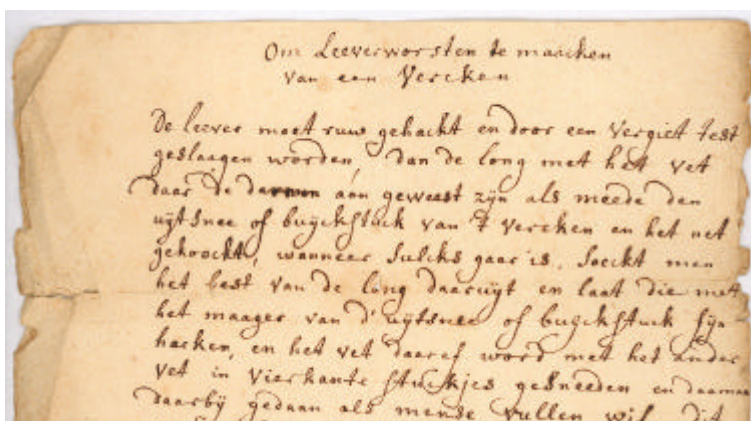 Om Leeverworsten te maacken
van een Vercken
De leever moet ruw gehackt en door een Vergiet test
geslaagen worden, dan de long met het vet
daar de darmen aan geweest zijn als meede den
uijtsnee of buijckstuck van 't vercken en het net
gekoockt, wanneer sulcks gaar is, soeckt men
het best van de long daaruijt en laat die met
het maager van d'uijtsnee of buijckstuck fijn
hacken, en het vet daaraf word met het ander
vet in vierkante stuckjes gesneeden en daarna
daarbij gedaan als mende vullen wil. Dit